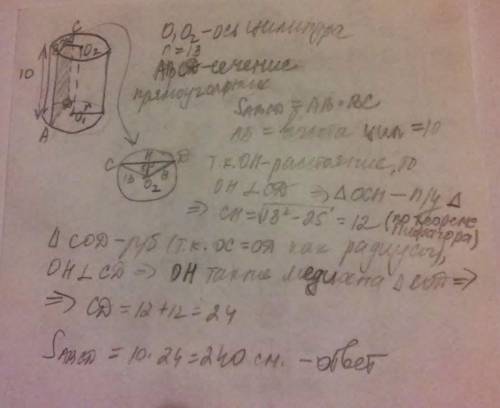 O₁O₂ - ось цилиндра
r = 13
ABCD - сечение
прямоугольник
S ABCD = AB · BC
AB = высота цил = 10
C
B
O₂
10
O₁
A
C
H
D
13
O₂
т.к. OH - расстояние, то
OH ⊥ CD ⇒ △ OCH - п/у △
⇒ CH = √13² - 25 = 12 (по теореме
Пифагора)
△ COD - р/б (т.к. OC = OD как радиусы,
OH ⊥ CD ⇒ OH также медиана △ COD ⇒
⇒ CD = 12 + 12 = 24
S ABCD = 10 · 24 = 240 см. - ответ